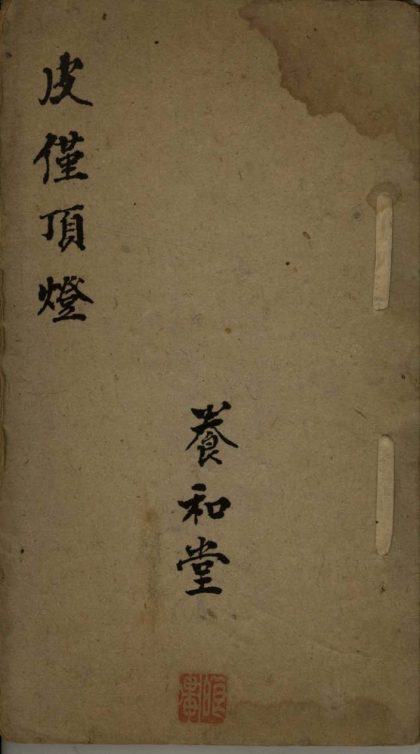 皮僅頂燈
養和堂